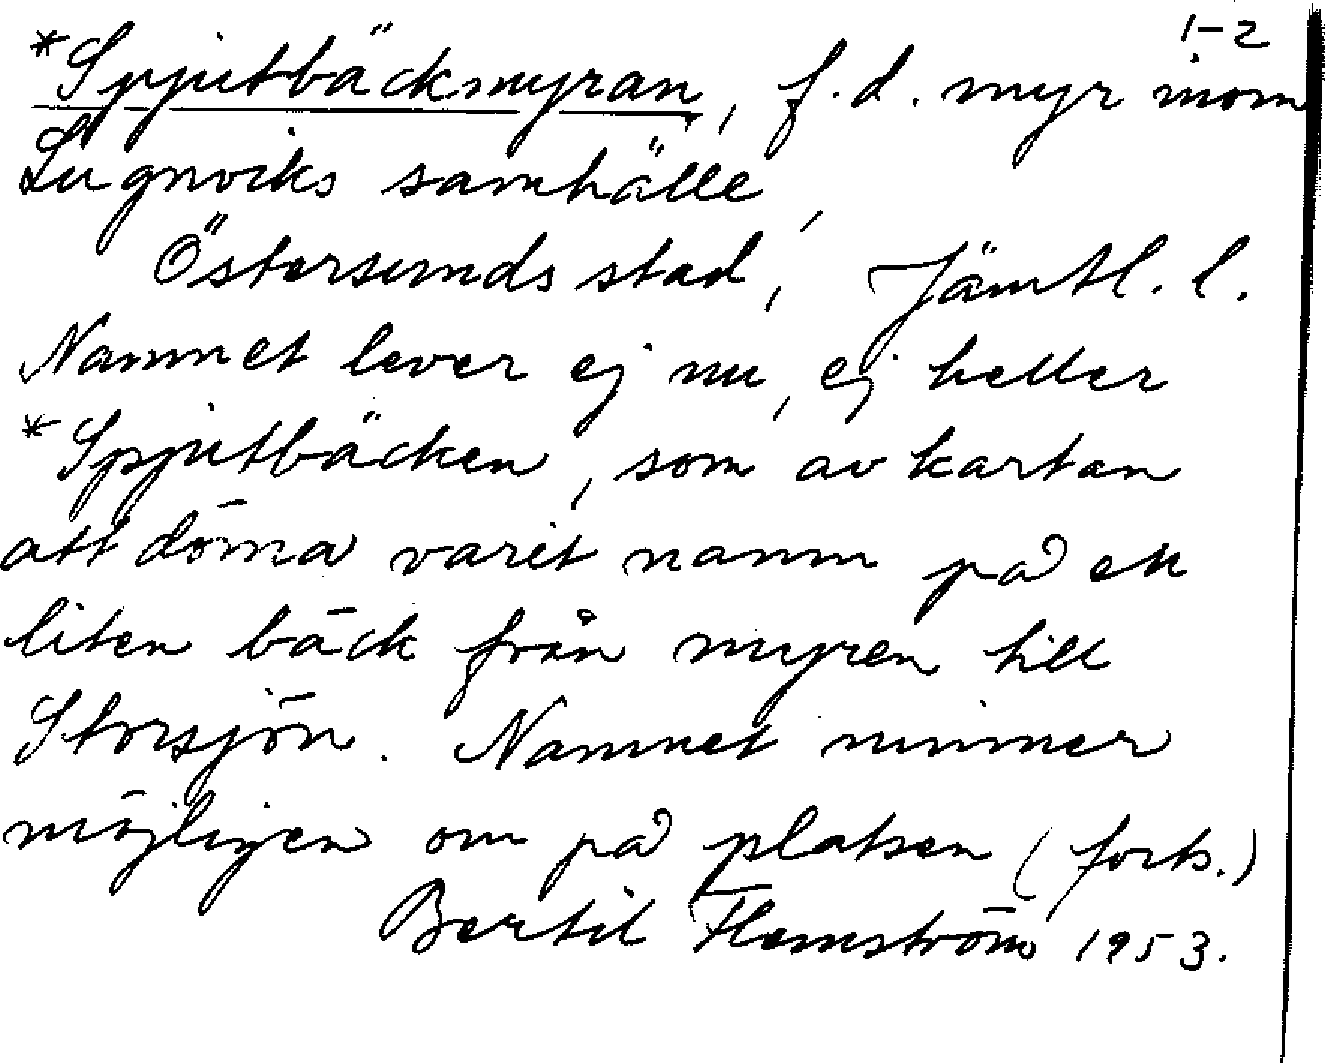 1-2
*Spjutbäckmyran, f.d. myr inom
Lugnviks samhälle,
Östersunds stad, Jämtl. l.
Namnet lever ej nu, ej heller
*Spjutbäcken, som av kartan
att döma varit namn på en
liten bäck från myren till
Storsjön. Namnet minner
möjligen om på platsen (forts.)
Bertil Flemström 1953.